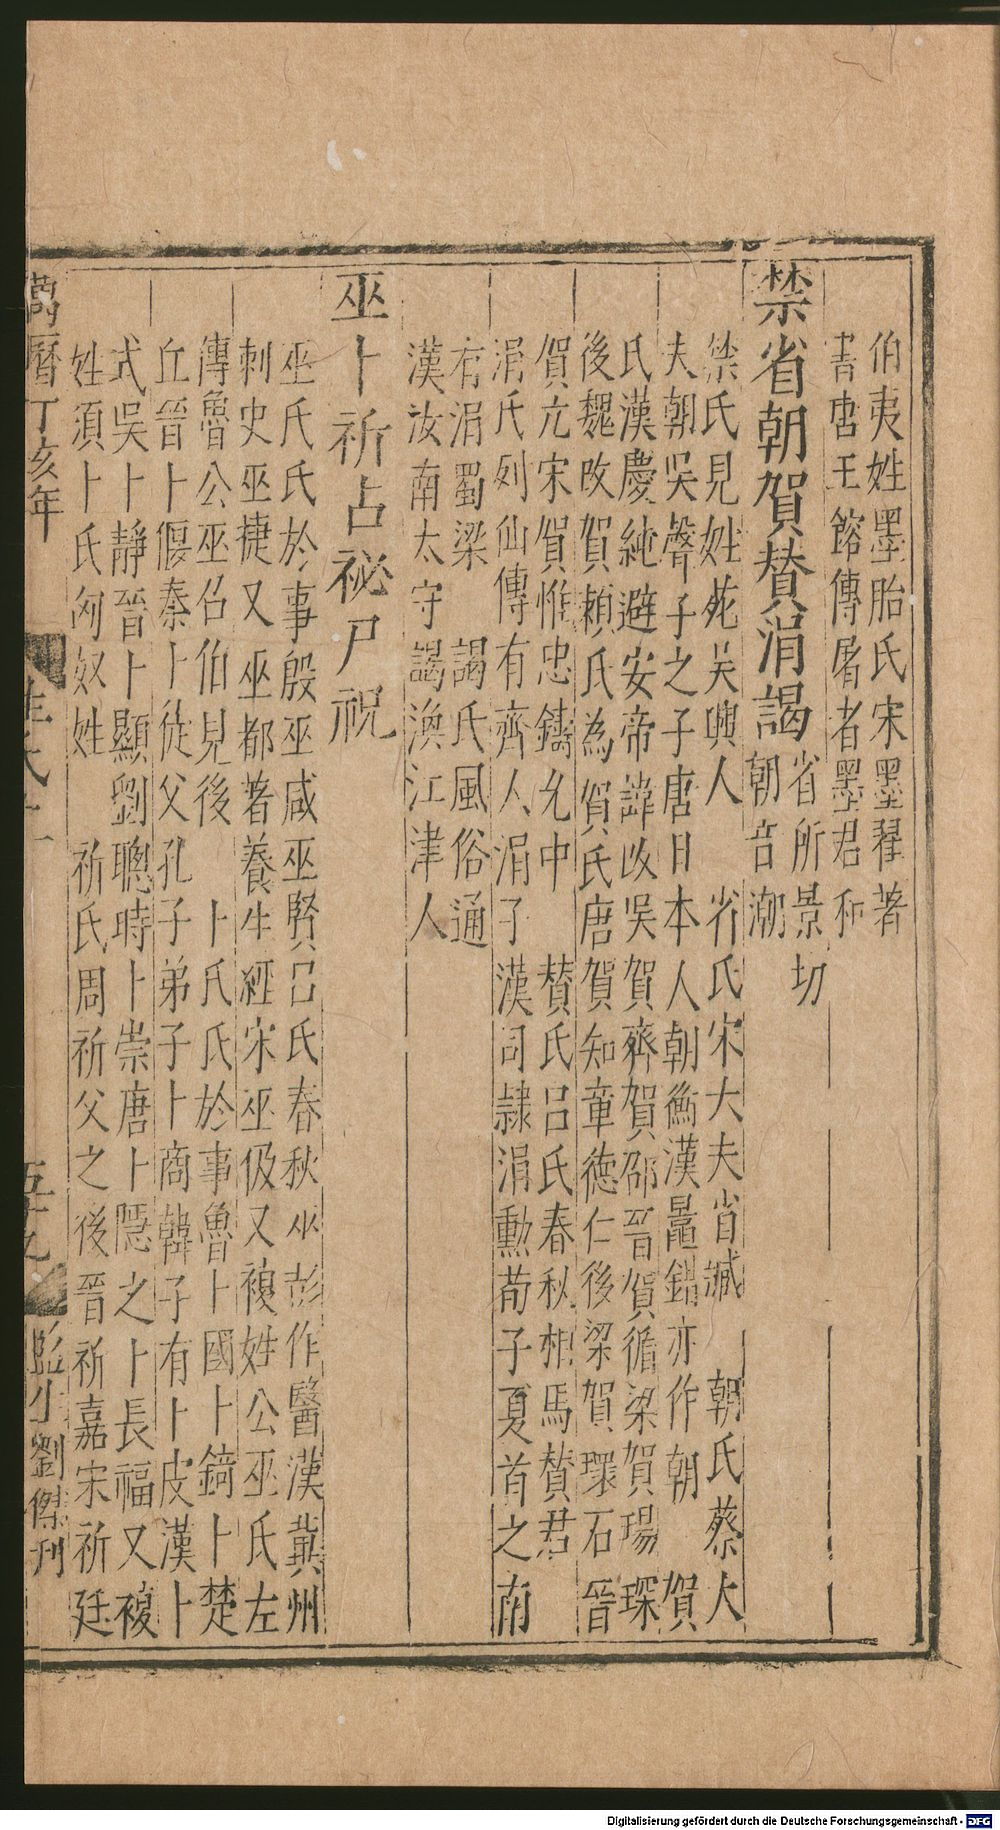 伯夷姓墨胎氏宋墨翟著
書唐王餙傳屠者墨君和
禁省朝賀賛涓謁
省所景切
朝音潮
禁氏見姓苑吴興人 省氏宋大夫省臧 朝氏蔡大
夫朝吳聲子之子唐日本人朝衡漢鼂錯亦作朝 賀
氏漢慶純避安帝諱改吳賀齊賀邵晉賀循梁賀瑒琛
後魏改賀頼氏為賀氏唐賀知章德仁後梁賀瓌石晉
賀亢宋賀惟忠鑄允中 賛氏吕氏春秋相馬賛君
涓氏列仙傳有齊人涓子漢司隸涓勳荀子夏首之南
有涓蜀梁 謁氏風俗通
漢汝南太守謁渙江津人
巫卜祈占祕尸祝
巫氏氏於事殷巫咸巫賢吕氏春秋巫彭作醫漢冀州
刺史巫捷又巫都著養生經宋巫伋又複姓公巫氏左
傳魯公巫召伯見後 卜氏氏於事魯卜國卜錡卜楚
丘晉卜偃秦卜徒父孔子弟子卜商韓子有卜皮漢卜
式吳卜靜晉卜顯劉聰時卜崇唐卜隱之卜長福又複
姓須卜氏匈奴姓 祈氏周祈父之後晉祈嘉宋祈廷
萬曆丁亥年
姓氏十
五十九
監生劉傑刊
Digitalisierung gefördert durch die Deutsche Forschungsgemeinschaft - DFG